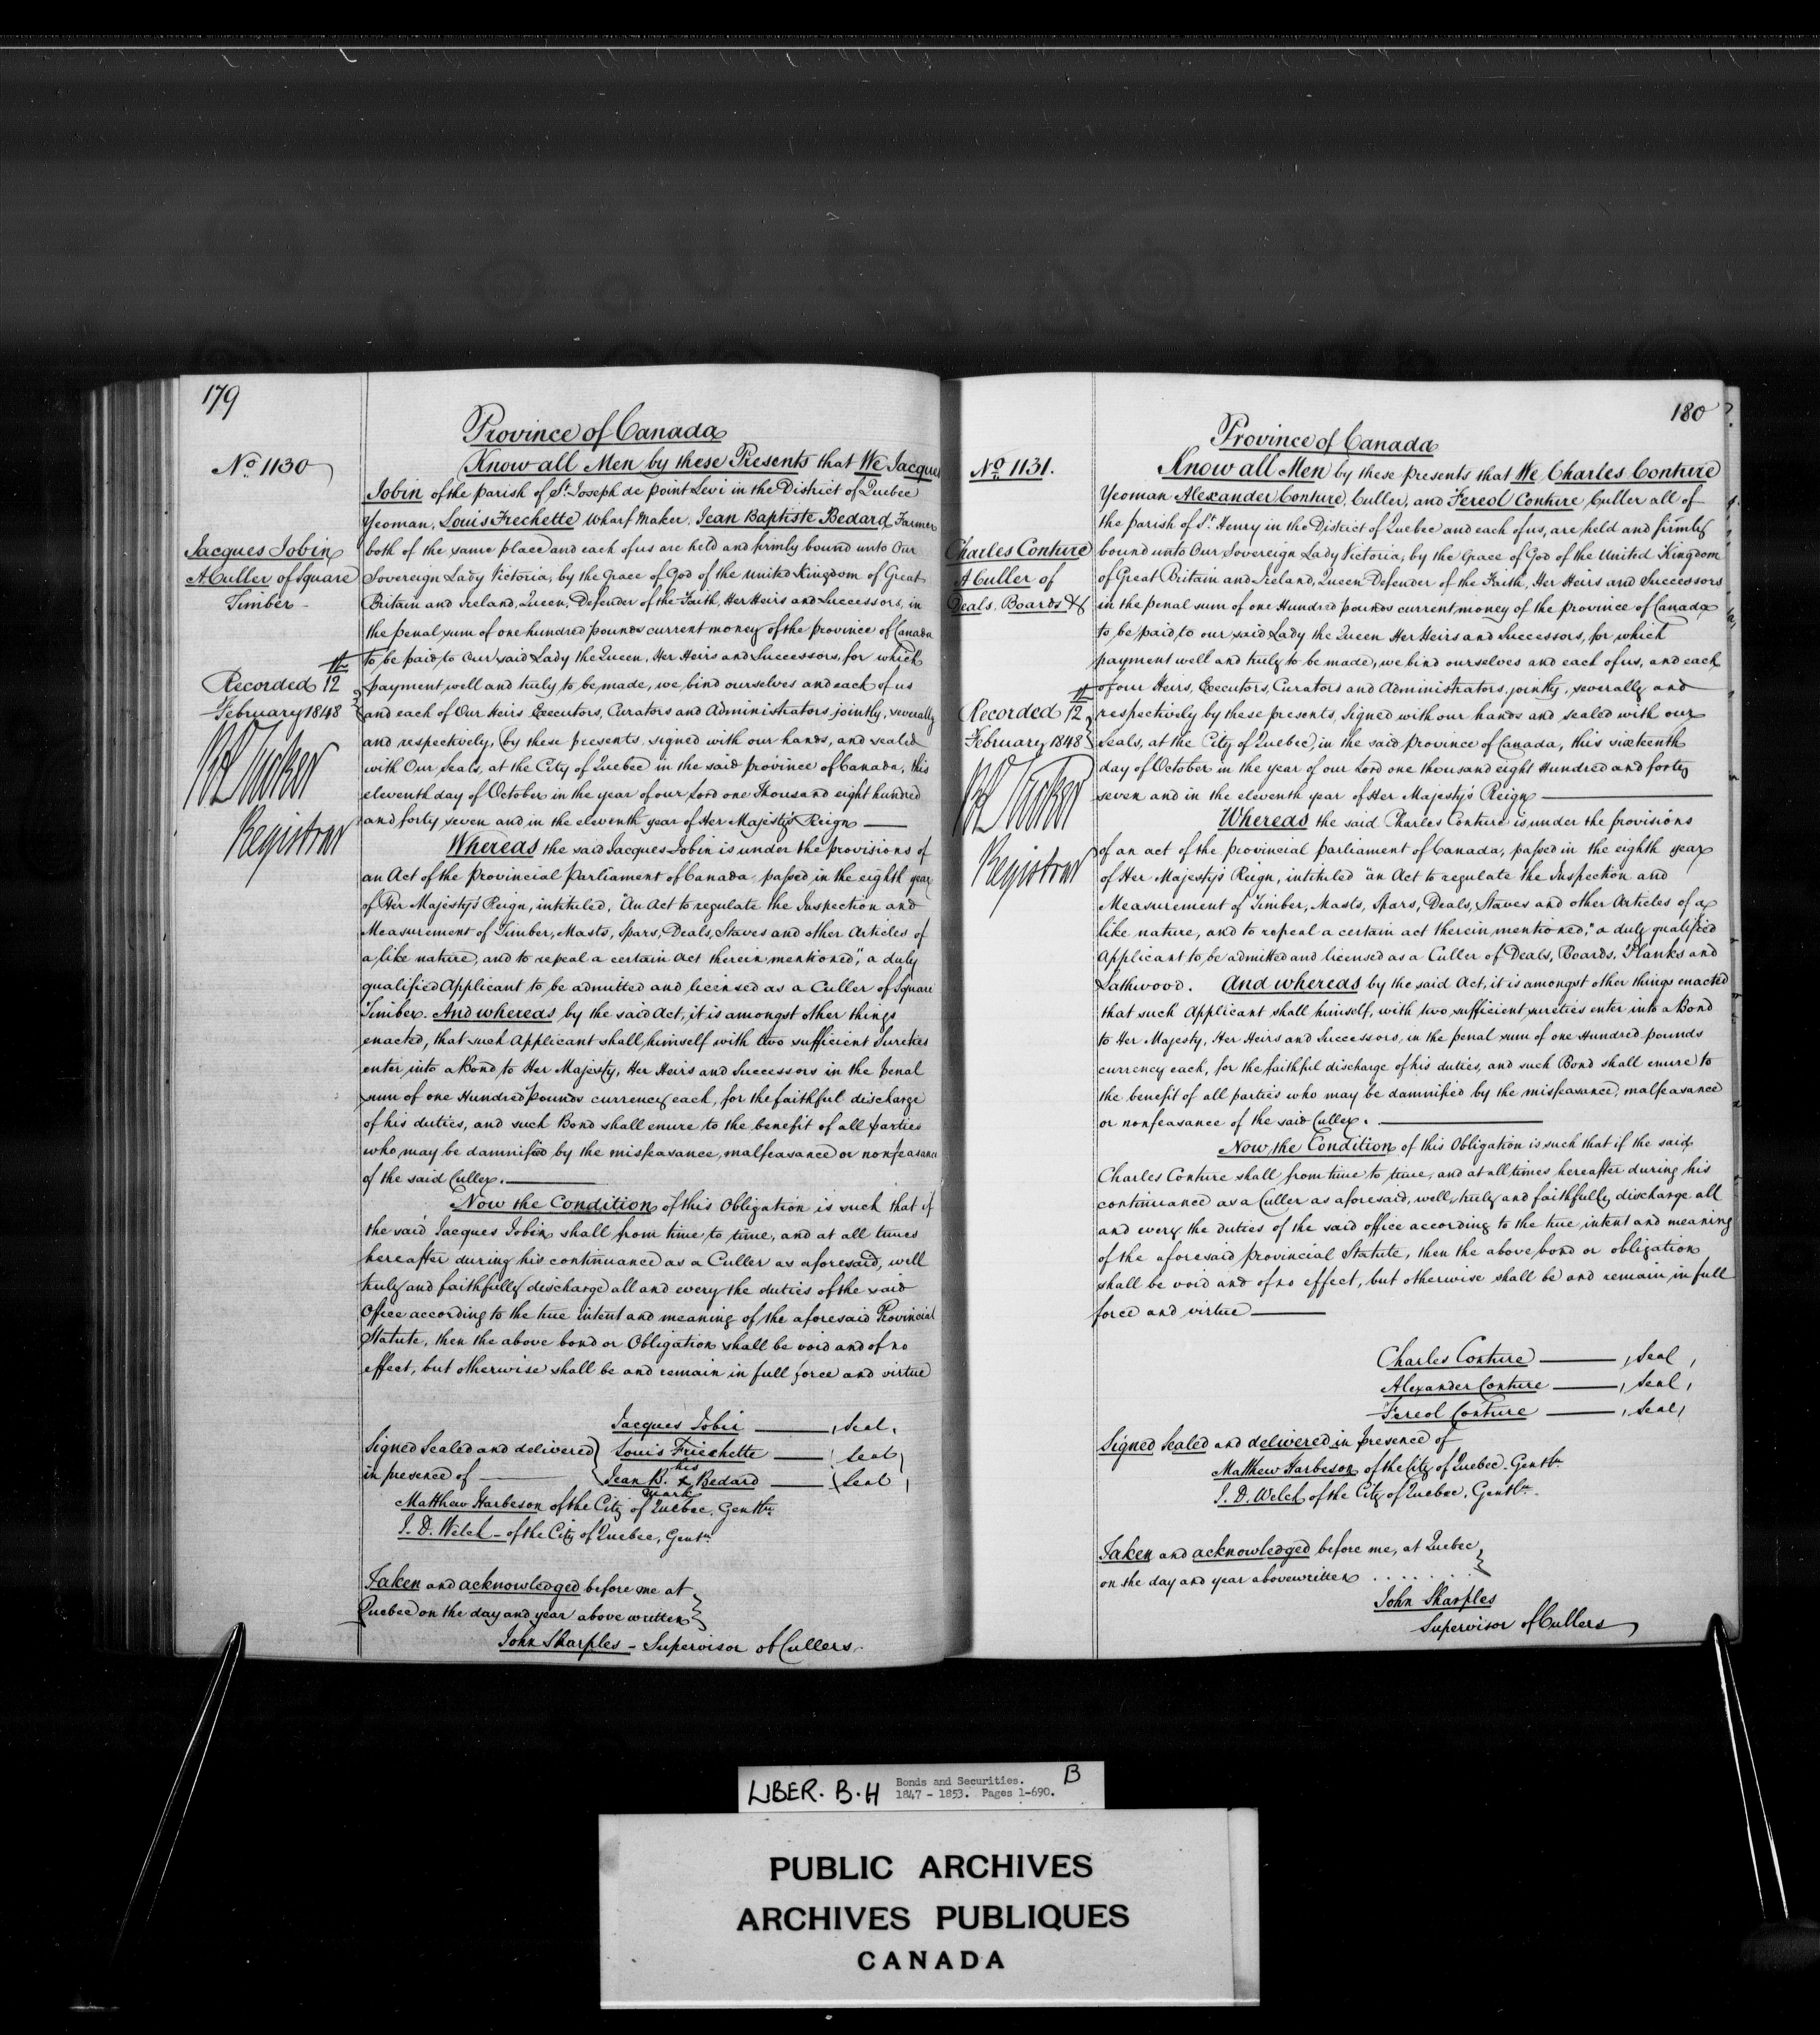 179
Province of Canada
No. 1130
Know all Men by these Presents that We Jacques
Jobin of the parish of St. Joseph de point Levi in the District of Quebec
Yeoman, Louis Frechette Wharf Maker, Jean Baptiste Bedard Farmer
Jacques Jobin
A Culler of Square
Timber
both of the same place and each of us are held and firmly bound unto Our
Sovereign Lady Victoria, by the Grace of God of the United Kingdom of Great
Britain and Ireland, Queen, Defender of the Faith, Her Heirs and Successors, in
the penal sum of one hundred pounds current money of the province of Canada
to be paid to Our said Lady the Queen, Her Heirs and Successors, for which
Recorded 12th
February 1848
Registrar
payment well and truly to be made, we bind ourselves and each of us
and each of Our Heirs Executors, Curators and Administrators jointly, severally
and respectively, by these presents signed with our hands, and sealed
with Our Seals, at the City of Quebec in the said province of Canada, this
eleventh day of October in the year of our Lord one Thousand eight hundred
and forty seven and in the eleventh year of Her Majesty's Reign
Whereas the said Jacques Jobin is under the provisions of
an Act of the Provincial Parliament of Canada passed in the eighth year
of Her Majesty's Reign, intituled, "An Act to regulate the Inspection and
Measurement of Timber, Masts, Spars, Deals, Staves and other Articles of
a like nature, and to repeal a certain Act therein mentioned", a duly
qualified Applicant to be admitted and licensed as a Culler of Square
Timber. And whereas by the said Act, it is amongst other things
enacted, that such Applicant shall himself with two sufficient Sureties
enter into a Bond to Her Majesty, Her Heirs and Successors in the penal
sum of one Hundred Pounds currency each, for the faithful discharge
of his duties, and such Bond shall enure to the benefit of all parties
who may be damnified by the misfeasance, malfeasance or nonfeasance
of the said Culler.
Now the Condition of this Obligation is such that if
the said Jacques Jobin shall from time, to time, and at all times
hereafter during his continuance as a Culler as aforesaid, well
truly and faithfully discharge all and every the duties of the said
Office according to the true intent and meaning of the aforesaid Provincial
Statute, then the above bond or Obligation shall be void and of no
effect, but otherwise shall be and remain in full force and virtue
Jacques Jobin Seal
Signed Sealed and delivered Louis Friechette Seal
his
in presence of Jean B. x Bedard Seal
mark
Matthew Harbeson of the City of Quebec, Gentln
J. D. Welch of the City of Quebec, Gentn
Taken and acknowledged before me at
Quebec on the day and year above written
John Sharples - Supervisor of Cullers
180
Province of Canada
No. 1131.
Know all Men by these presents that We Charles Conture
Yeoman Alexander Conture, Culler, and Fereol Conture Culler all of
the parish of St. Henry in the District of Quebec and each of us, are held and firmly
Charles Conture
A Culler of
Deals, Boards &c
bound unto Our Sovereign Lady Victoria, by the Grace of God of the United Kingdom
of Great Britain and Ireland, Queen Defender of the Faith, Her Heirs and Successors
in the penal sum of one Hundred pounds current money of the province of Canada
to be paid to our said Lady the Queen Her Heirs and Successors, for which
payment well and truly to be made, we bind ourselves and each of us, and each
Recorded 12th
February 1848
Registrar
of our Heirs, Executors, Curators and Administrators jointly, severally and
respectively by these presents, Signed with our hands and sealed with our
Seals, at the City of Quebec, in the said province of Canada, this sixteenth
day of October in the year of our Lord one thousand eight Hundred and forty
seven and in the eleventh year of Her Majesty's Reign
Whereas the said Charles Conture is under the provisions
of an act of the provincial parliament of Canada, passed in the eighth year
of Her Majesty's Reign, intituled "an Act to regulate the Inspection and
Measurement of Timber, Masts, Spars, Deals, Staves and other Articles of a
like nature, and to repeal a certain act therein mentioned," a duly qualified
Applicant to be admitted and licensed as a Culler of Deals, Boards, Planks and
Lathwood. And whereas by the said Act, it is amongst other things enacted
that such Applicant shall himself, with two sufficient sureties enter into a Bond
to Her Majesty, Her Heirs and Successors, in the penal sum of one Hundred pounds
currency each, for the faithful discharge of his duties, and such Bond shall enure to
the benefit of all parties who may be damnified by the misfeasance, malfeasance
or nonfeasance of the said Culler.
Now the Condition of this Obligation is such that if the said
Charles Conture shall from time to time, and at all times hereafter during his
continuance as a Culler as aforesaid, well, truly and faithfully discharge all
and every the duties of the said office according to the true intent and meaning
of the aforesaid provincial Statute, then the above bond or obligation
shall be void and of no effect, but otherwise shall be and remain in full
force and virtue
Charles Conture Seal
Alexander Conture Seal
Fereol Conture Seal
Signed Sealed and delivered in presence of
Matthew Harbeson of the City of Quebec. Gentln
J. D. Welch of the City of Quebec, Gentln
Taken and acknowledged before me, at Quebec
on the day and year abovewritten
John Sharples
Supervisor of Cullers
LIBER. B.H Bonds and Securities. B
1847 - 1853. Pages 1-690.
PUBLIC ARCHIVES
ARCHIVES PUBLIQUES
CANADA